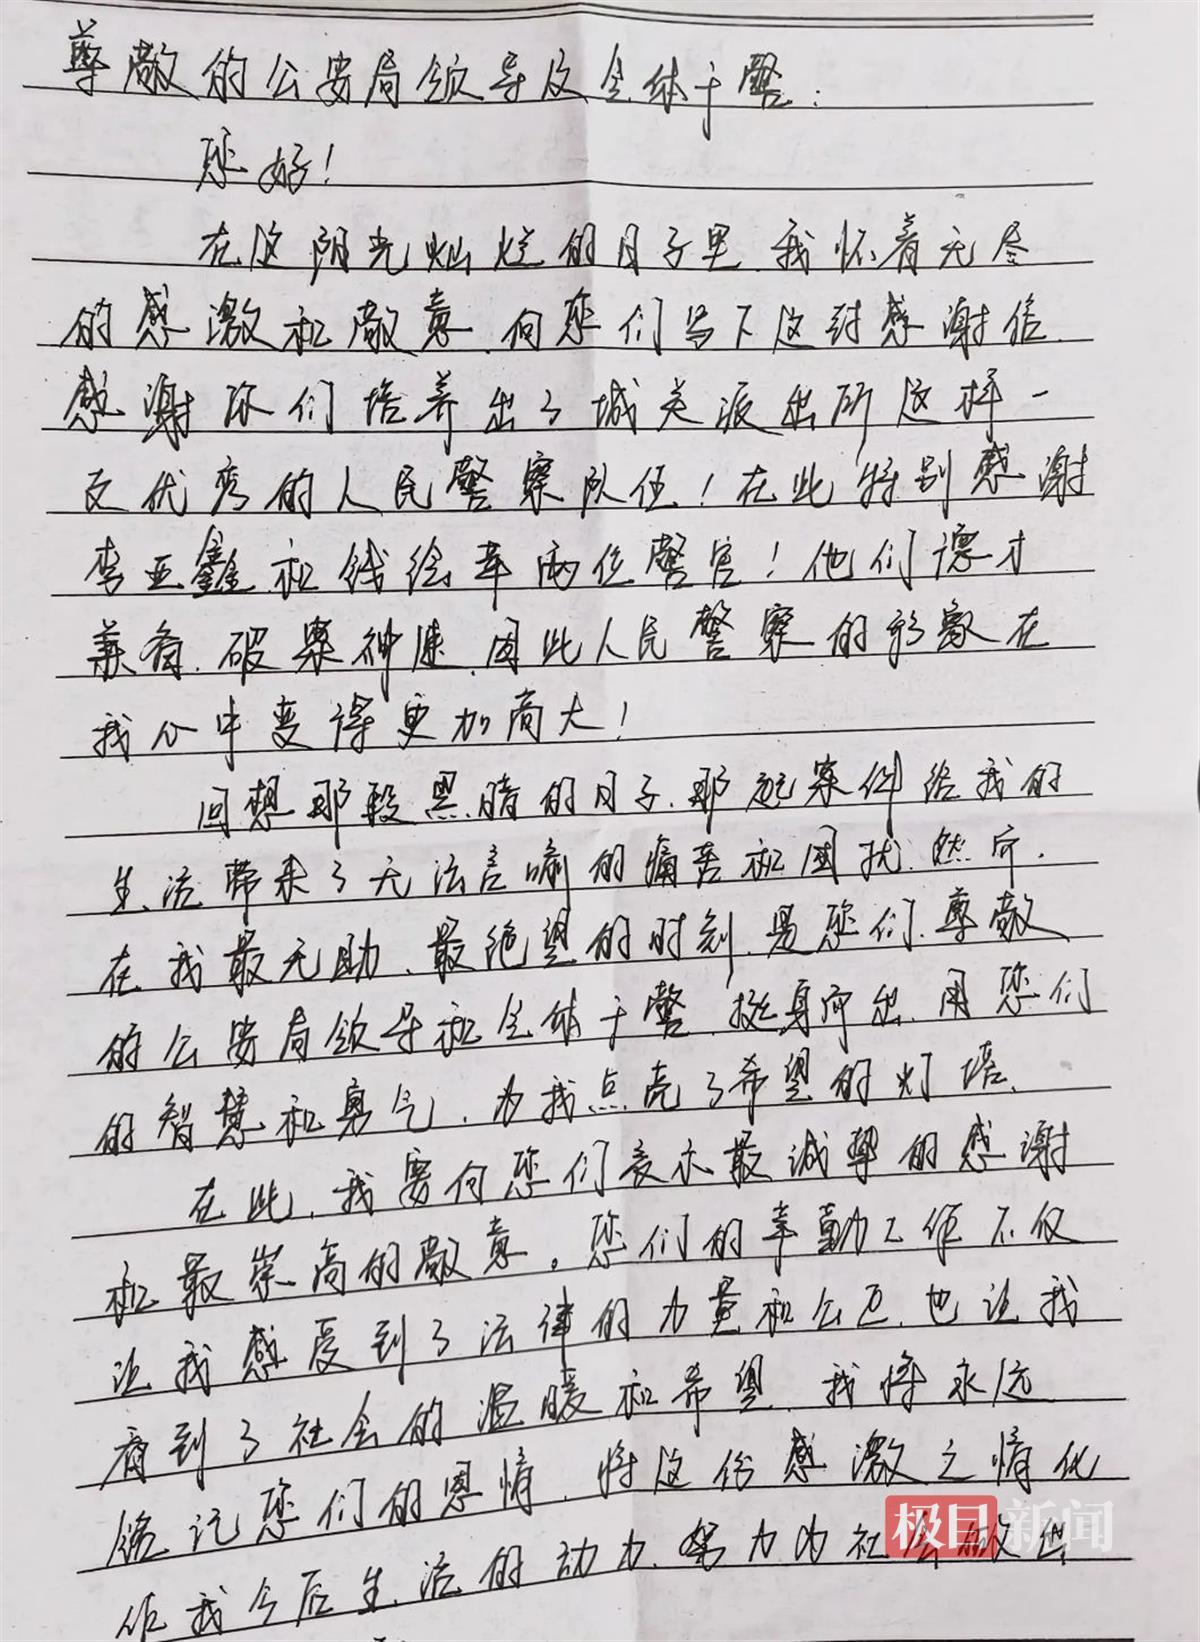 尊敬的公安局领导及全体干警:
您好!
在这阳光灿烂的日子里,我怀着无尽
的感激和敬意,向您们写下这封感谢信,
感谢你们培养出了城关派出所这样一
支优秀的人民警察队伍!在此特别感谢
李亚鑫和钱绘羊两位警官!他们德才
兼备,破案神速,因此人民警察的形象在
我心中变得更加高大!
回想那段黑暗的日子,那起案件给我的
生活带来了无法言喻的痛苦和困扰,然而,
在我最无助、最绝望的时刻,是您们,尊敬
的公安局领导和全体干警,挺身而出,用您们
的智慧和勇气,为我点亮了希望的灯塔,
在此,我要向您们表示最诚挚的感谢
和最崇高的敬意。您们的辛勤工作不仅
让我感受到了法律的力量和公正,也让我
看到了社会的温暖和希望,我将永远
铭记您们的恩情,将这份感激之情化
作我今后生活的动力,努力为社会做出
极目新闻